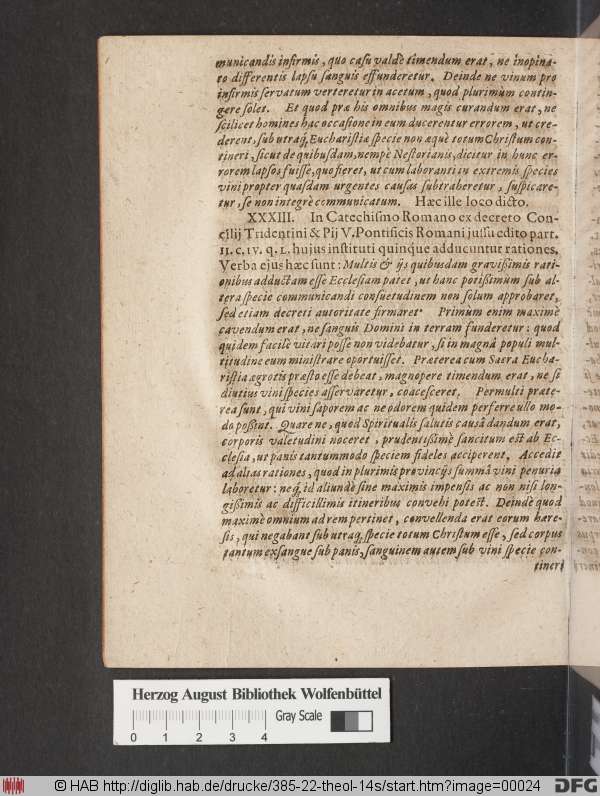 municandis infirmis, quo casu valdè timendum erat, ne inopina-
to differentis lapsu sanguis effunderetur. Deinde ne vinum pro
infirmis servatum verteretur in acetum, quod plurimum contin-
gere solet. Et quod præ his omnibus magis curandum erat, ne
scilicet homines hac occasione in eum ducerentur errorem, ut cre-
derent, sub utraq; Eucharistiæ specie non æquè totum Christum con-
tineri, sicut de quibusdam, nempè Nestorianis, dicitur in hunc er-
rorem lapsos fuisse, quo fieret, ut cum laboranti in extremis species
vini propter quasdam urgentes causas subtraheretur, suspicare-
tur, se non integrè communicatum. Hæc ille loco dicto.
XXXIII. In Catechismo Romano ex decreto Con-
cilij Tridentini & Pij V. Pontificis Romani jussu edito part.
II. c. IV. q. L. hujus instituti quinque adducuntur rationes.
Verba ejus hæc sunt: Multis & ijs quibusdam gravißimis rati-
onibus adductam esse Ecclesiam patet, ut hanc potißimùm sub al-
tera specie communicandi consuetudinem non solum approbaret,
sed etiam decreti autoritate firmaret. Primùm enim maximè
cavendum erat, ne sanguis Domini in terram funderetur: quod
quidem facilè vitari posse non videbatur, si in magnâ populi mul-
titudine eum ministrare oportuisset. Præterea cum Sacra Eucha-
ristia ægrotis præsto esse debeat, magnopere timendum erat, ne si
diutius vini species asservaretur, coacesceret. Permulti præte-
rea sunt, qui vini saporem ac ne odorem quidem perferre ullo mo-
do poßint. Quare ne, quod Spiritualis salutis causâ dandum erat,
corporis valetudini noceret, prudentißimè sancitum est ab Ec-
clesia, ut panis tantummodo speciem fideles acciperent. Accedit
ad alias rationes, quod in plurimis provincijs summâ vini penuria
laboretur: neq; id aliundè sine maximis impensis ac non nisi lon-
gißimis ac difficillimis itineribus convehi potest. Deindè quod
maximè omnium ad rem pertinet, convellenda erat eorum hære-
sis, qui negabant sub utraq; specie totum Christum esse, sed corpus
tantum exsangue sub panis, sanguinem autem sub vini specie con-
tineri
Herzog August Bibliothek Wolfenbüttel
0 1 2 3 4 Gray Scale
© HAB http://diglib.hab.de/drucke/385-22-theol-14s/start.htm?image=00024
DFG